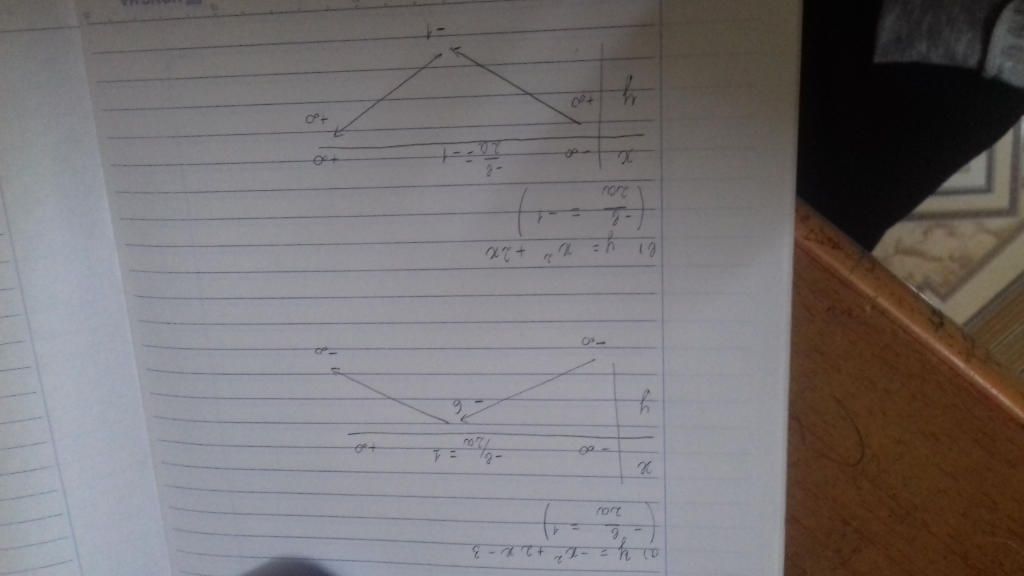 a) y = -x² + 2x - 3
(-b/2a = 1)
x -∞ -b/2a = 1 +∞
y
-∞ -∞
b) y = x² + 2x
(-b/2a = -1)
x -∞ -b/2a = -1 +∞
y +∞ +∞
-1